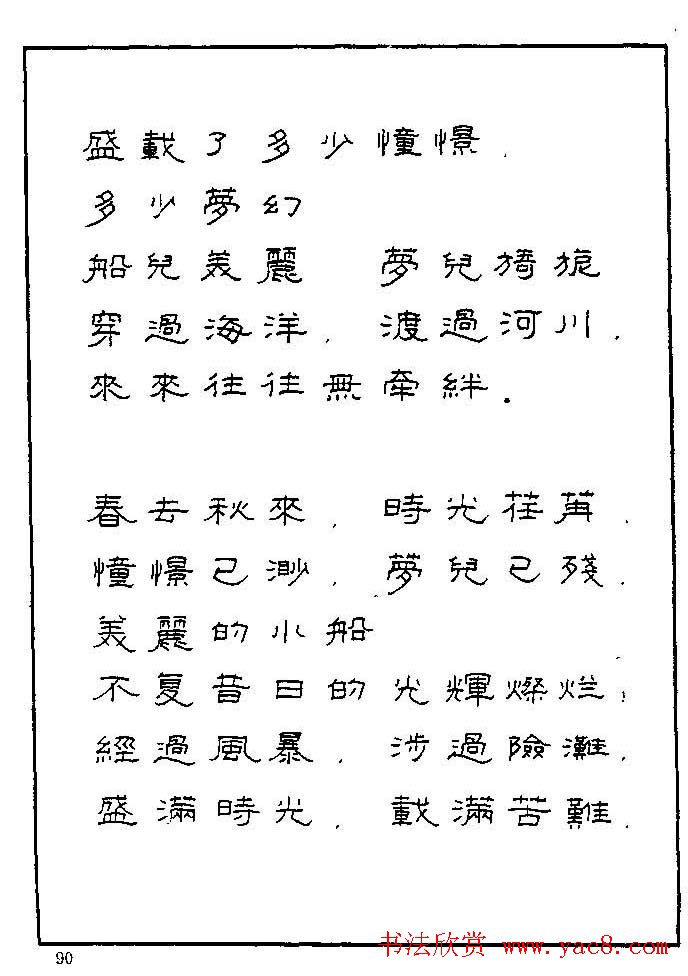 盛載了多少憧憬,
多少夢幻
船兒美麗 夢兒旖旎
穿過海洋,渡過河川,
來來往往無牽絆.
春去秋來,時光荏苒,
憧憬已渺,夢兒已殘,
美麗的小船
不复昔日的光輝燦烂;
經過風暴,涉過險灘,
盛滿時光,載滿苦難,
90
书法欣赏 www.yac8.com